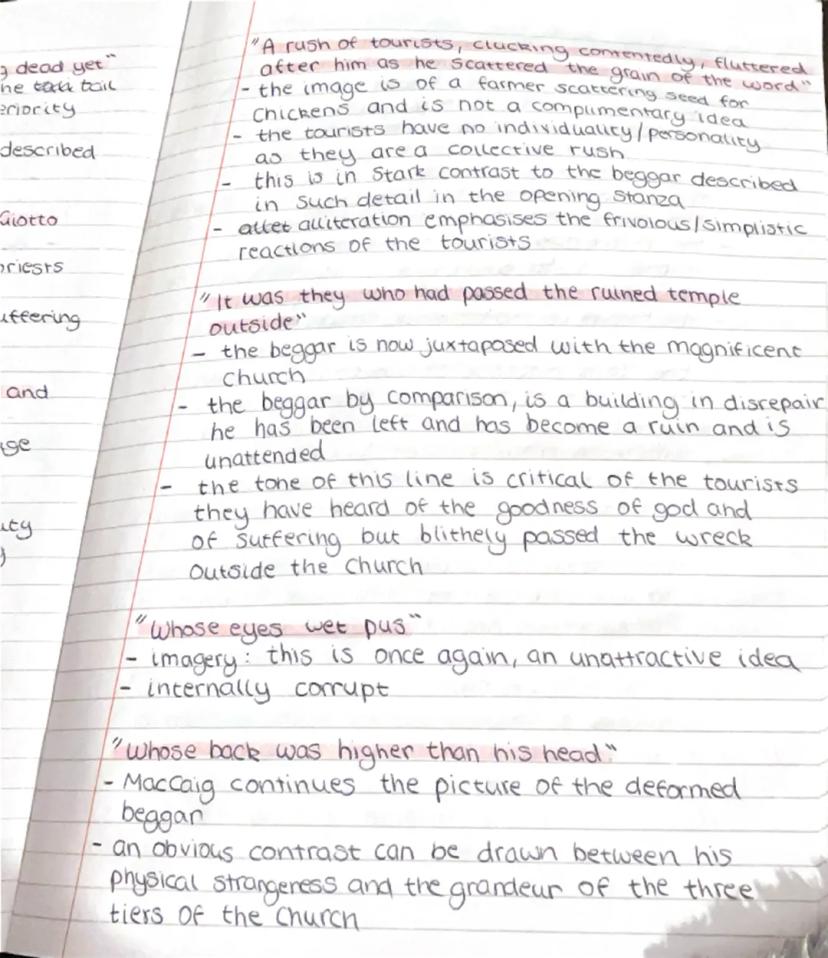 g dead yet"
he tail
eriority
described
Giotto
priests
uffering
and
ge
ity
"A rush of tourists, clucking contentedly, fluttered
after him as he scattered the grain of the word"
- the image is of a farmer scattering seed for
chickens and is not a complimentary idea
- the tourists have no individuality/personality
as they are a collective rush
- this is in stark contrast to the beggar described
in such detail in the opening stanza
- alliteration emphasises the frivolous/simplistic
reactions of the tourists
"It was they who had passed the ruined temple
outside"
- the beggar is now juxtaposed with the magnificent
church
- the beggar by comparison, is a building in disrepair
he has been left and has become a ruin and is
unattended
- the tone of this line is critical of the tourists
they have heard of the goodness of god and
of suffering but blithely passed the wreck
outside the church
"Whose eyes wet pus"
- imagery: this is once again, an unattractive idea
- internally corrupt
"Whose back was higher than his head"
- MacCaig continues the picture of the deformed
beggar
- an obvious contrast can be drawn between his
physical strangeness and the grandeur of the three
tiers of the church